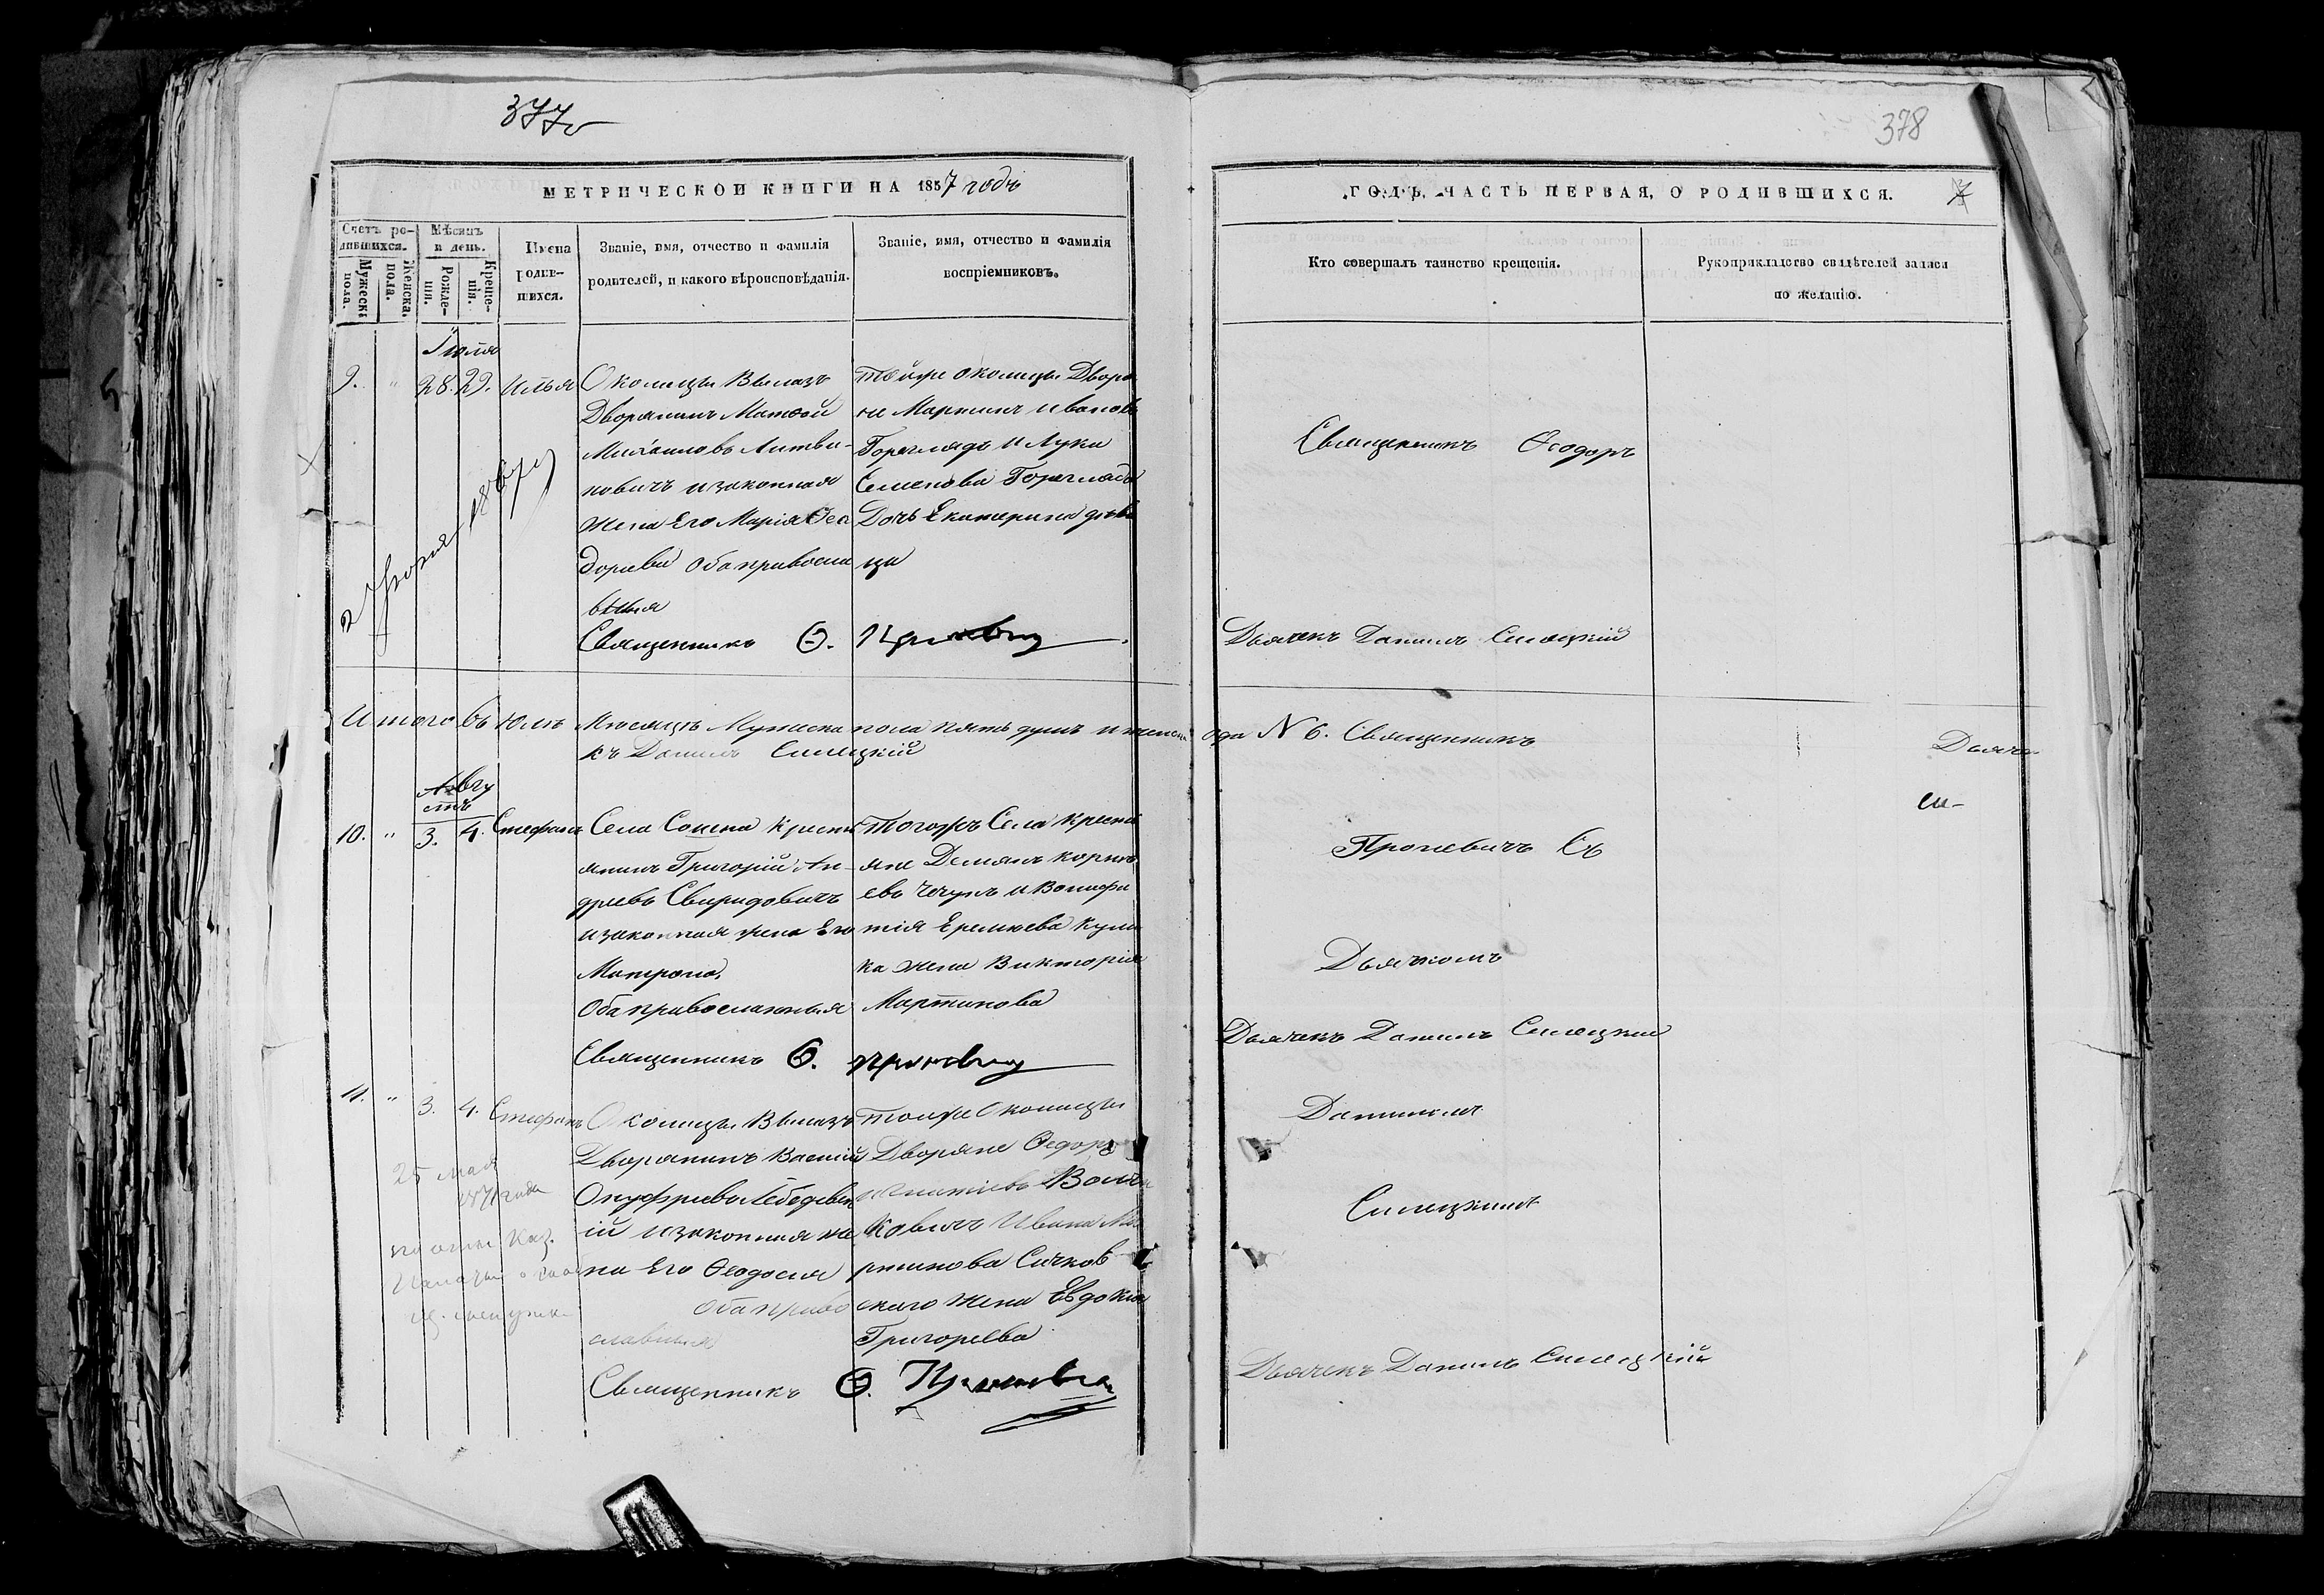 377
МЕТРИЧЕСКОЙ КНИГИ НА 1857 годъ
Счетъ ро-
дившихся.
Мужеска
пола.
Женска.
пола.
Мѣсяцъ
и день.
Рожде-
нія.
Креще-
нія.
Имена
родив-
шихся.
Званіе, имя, отчество и фамилія
родителей, и какого вѣроисповѣданія.
Званіе, имя, отчество и фамилія
воспріемниковъ.
Іюля
9. " 28. 29. Илья
Околицы Вылазъ
Дворянинъ Матвѣй
Михаиловъ Литви-
новичъ и законная
жена Его Марія Ѳео
дорова оба правосла
вныя
тойже околицы Дворя
не Мартинъ Ивановъ
Горегладъ и Луки
Семенова Горегляда
Дочь Екатерина дѣви
ца
Священникъ Ѳ.
Итого въ Юлѣ Мѣсяцѣ Мужска пола пять душъ и женска
къ Данилъ Сплецкій
Авгу
стъ
10. " 3. 4. Стефанъ
Села Сошна Крестъ
янинъ Григорій Ан-
дреевъ Свиридовичъ
и законная жена Его
Матрона,
Оба православныя
тогожъ Села Крестья
яне Демянъ
евъ и Вонифа
тія Еремѣева Кули
ка жена Викторія
Мартинова
Священникъ Ѳ.
11. " 3. 4. Стефанъ
Околицы Вылазъ
Дворянинъ Василій
Онуфріевъ Лебедевск
ій и законная же
на Его Ѳеодосія
оба право
славныя
тойже Околицы
Дворяне Ѳедоръ
Игнатіевъ
ковичъ Ивана Ма
ртинова Сачков
скаго жена Евдокія
Григорьева
25 мая
1871 года
Священникъ Ѳ.
378
ГОДЪ, ЧАСТЬ ПЕРВАЯ, О РОДИВШИХСЯ.
7
Кто совершалъ таинство крещенія.
Рукоприкладство свидѣтелей записи
по желанію.
Священникъ Ѳеодоръ
Дьячекъ Данилъ Сплецкій
N 6. Священникъ
Дьяче-
Проневичъ Съ
Дьячкомъ
Дьячекъ Данилъ Сплецкій
Даниломъ
Сплецкимъ
Дьячекъ Данилъ Сплецкій